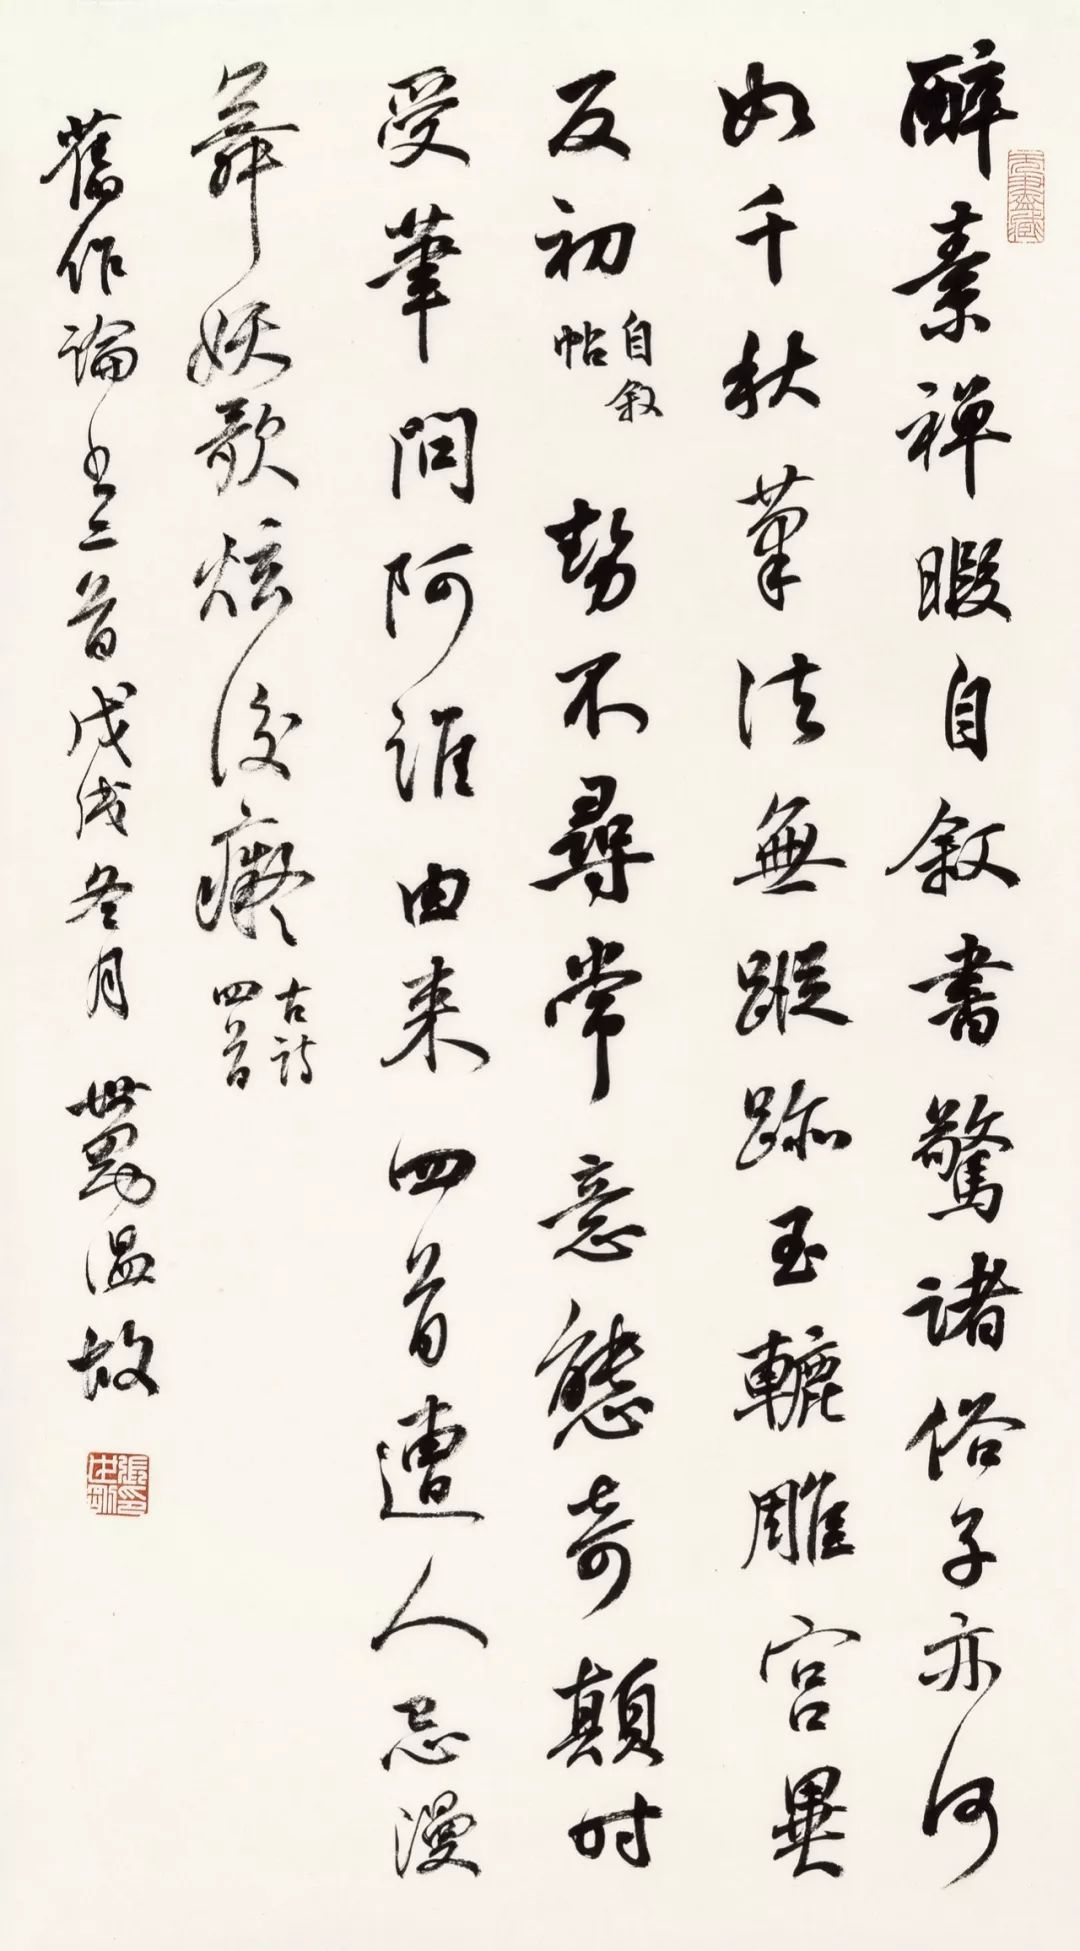 醉素禅暇自叙書驚諸俗子亦何
如千秋筆法無蹤跡玉轆雕宫異
反初
自叙
帖
勢不尋常意態奇顛时
受筆問阿誰由来四首遭人忌漫
舞妖歌炫後癡
古詩
四首
舊作論书二首戊戌冬月
世剛温故